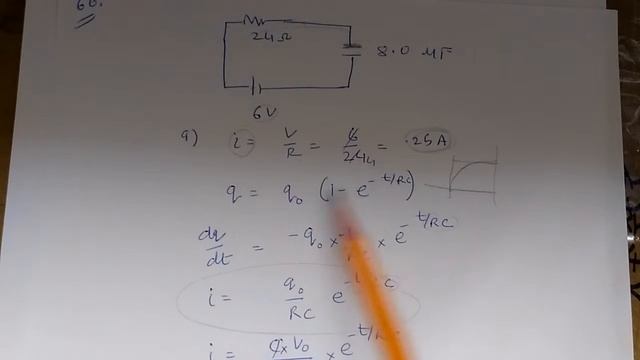 60.
24Ω
8.0 µF
6V
a) i = V/R = 6/24 4 = .25A
q = q₀ (1 - e^-t/RC)
dq/dt = -q₀ × × e^-t/RC
i = q₀/RC e
i = ¢×V₀ × e^-t/RC